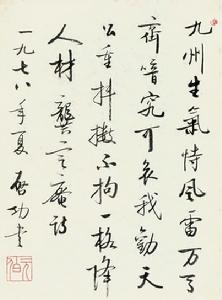 九州生氣恃風雷万馬
齊喑究可哀我勸天
公重抖擻不拘一格降
人材 龔定庵詩
一九七八年夏 啟功書